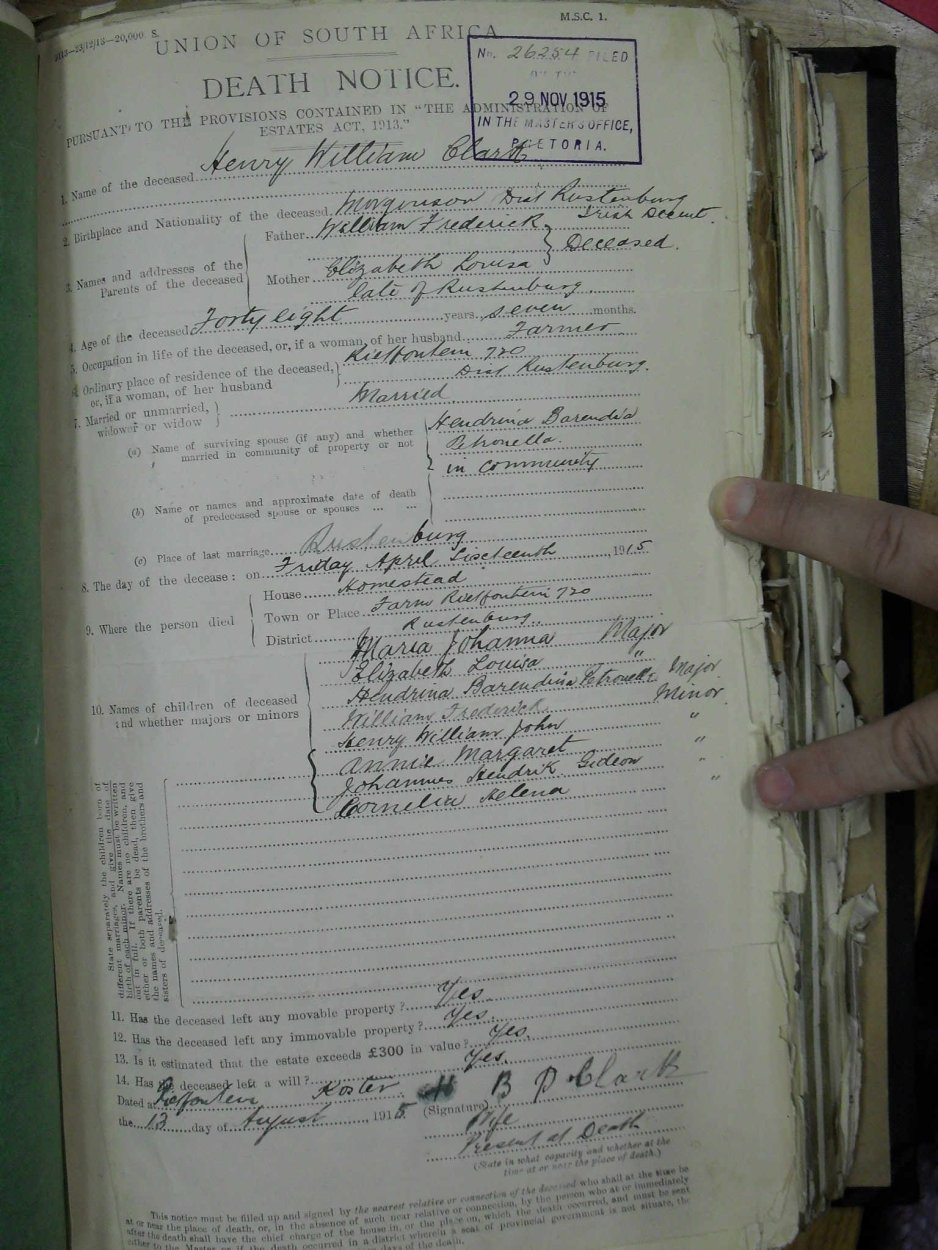 M.S.C. 1.
UNION OF SOUTH AFRICA
DEATH NOTICE.
No. 26254 FILED
29 NOV 1915
IN THE MASTER'S OFFICE,
PRETORIA.
PURSUANT TO THE PROVISIONS CONTAINED IN "THE ADMINISTRATION OF
ESTATES ACT, 1913."
1. Name of the deceased Henry William Clark
2. Birthplace and Nationality of the deceased Dist Rustenburg
Irish Decent.
3. Names and addresses of the Parents of the deceased
Father William Frederick
Deceased.
Mother Elizabeth Lovisa
late of Rustenburg.
4. Age of the deceased Forty eight years seven months.
5. Occupation in life of the deceased, or, if a woman, of her husband Farmer
6. Ordinary place of residence of the deceased, or, if a woman, of her husband Rietfontein 720
Dist Rustenburg.
7. Married or unmarried, widower or widow Married
(a) Name of surviving spouse (if any) and whether married in community of property or not
Hendrina Barendia
Petronella.
in community
(b) Name or names and approximate date of death of predeceased spouse or spouses
(c) Place of last marriage Rustenburg
8. The day of the decease: on Friday April Sixteenth 1915
9. Where the person died
House Homestead
Town or Place Farm Rietfontein 720
District Rustenburg.
10. Names of children of deceased and whether majors or minors
Maria Johanna Major
Elizabeth Louisa "
Hendrina Barendina Petronella Major
William Frederick Minor
Henry William John "
Annie Margaret "
Johannes Hendrik Gideon "
Cornelia Helena "
State separately the children born of
different marriages, and give the date of
birth of each minor. Names must be written
out in full. If there are no children, and
either or both parents be dead, then give
the names and addresses of the brothers and
sisters of deceased.
11. Has the deceased left any movable property? Yes
12. Has the deceased left any immovable property? Yes.
13. Is it estimated that the estate exceeds £300 in value? Yes.
14. Has the deceased left a will? Yes.
Dated at Rietfontein Koster
the 13 day of August 1915
(Signature) H B P Clark
Wife
Present at Death
(State in what capacity and whether at the
time at or near the place of death.)
This notice must be filled up and signed by the nearest relative or connection of the deceased who shall at the time be
at or near the place of death, or, in the absence of such near relative or connection, by the person who at or immediately
after the death shall have the chief charge of the house in, or the place on, which the death occurred, and must be sent